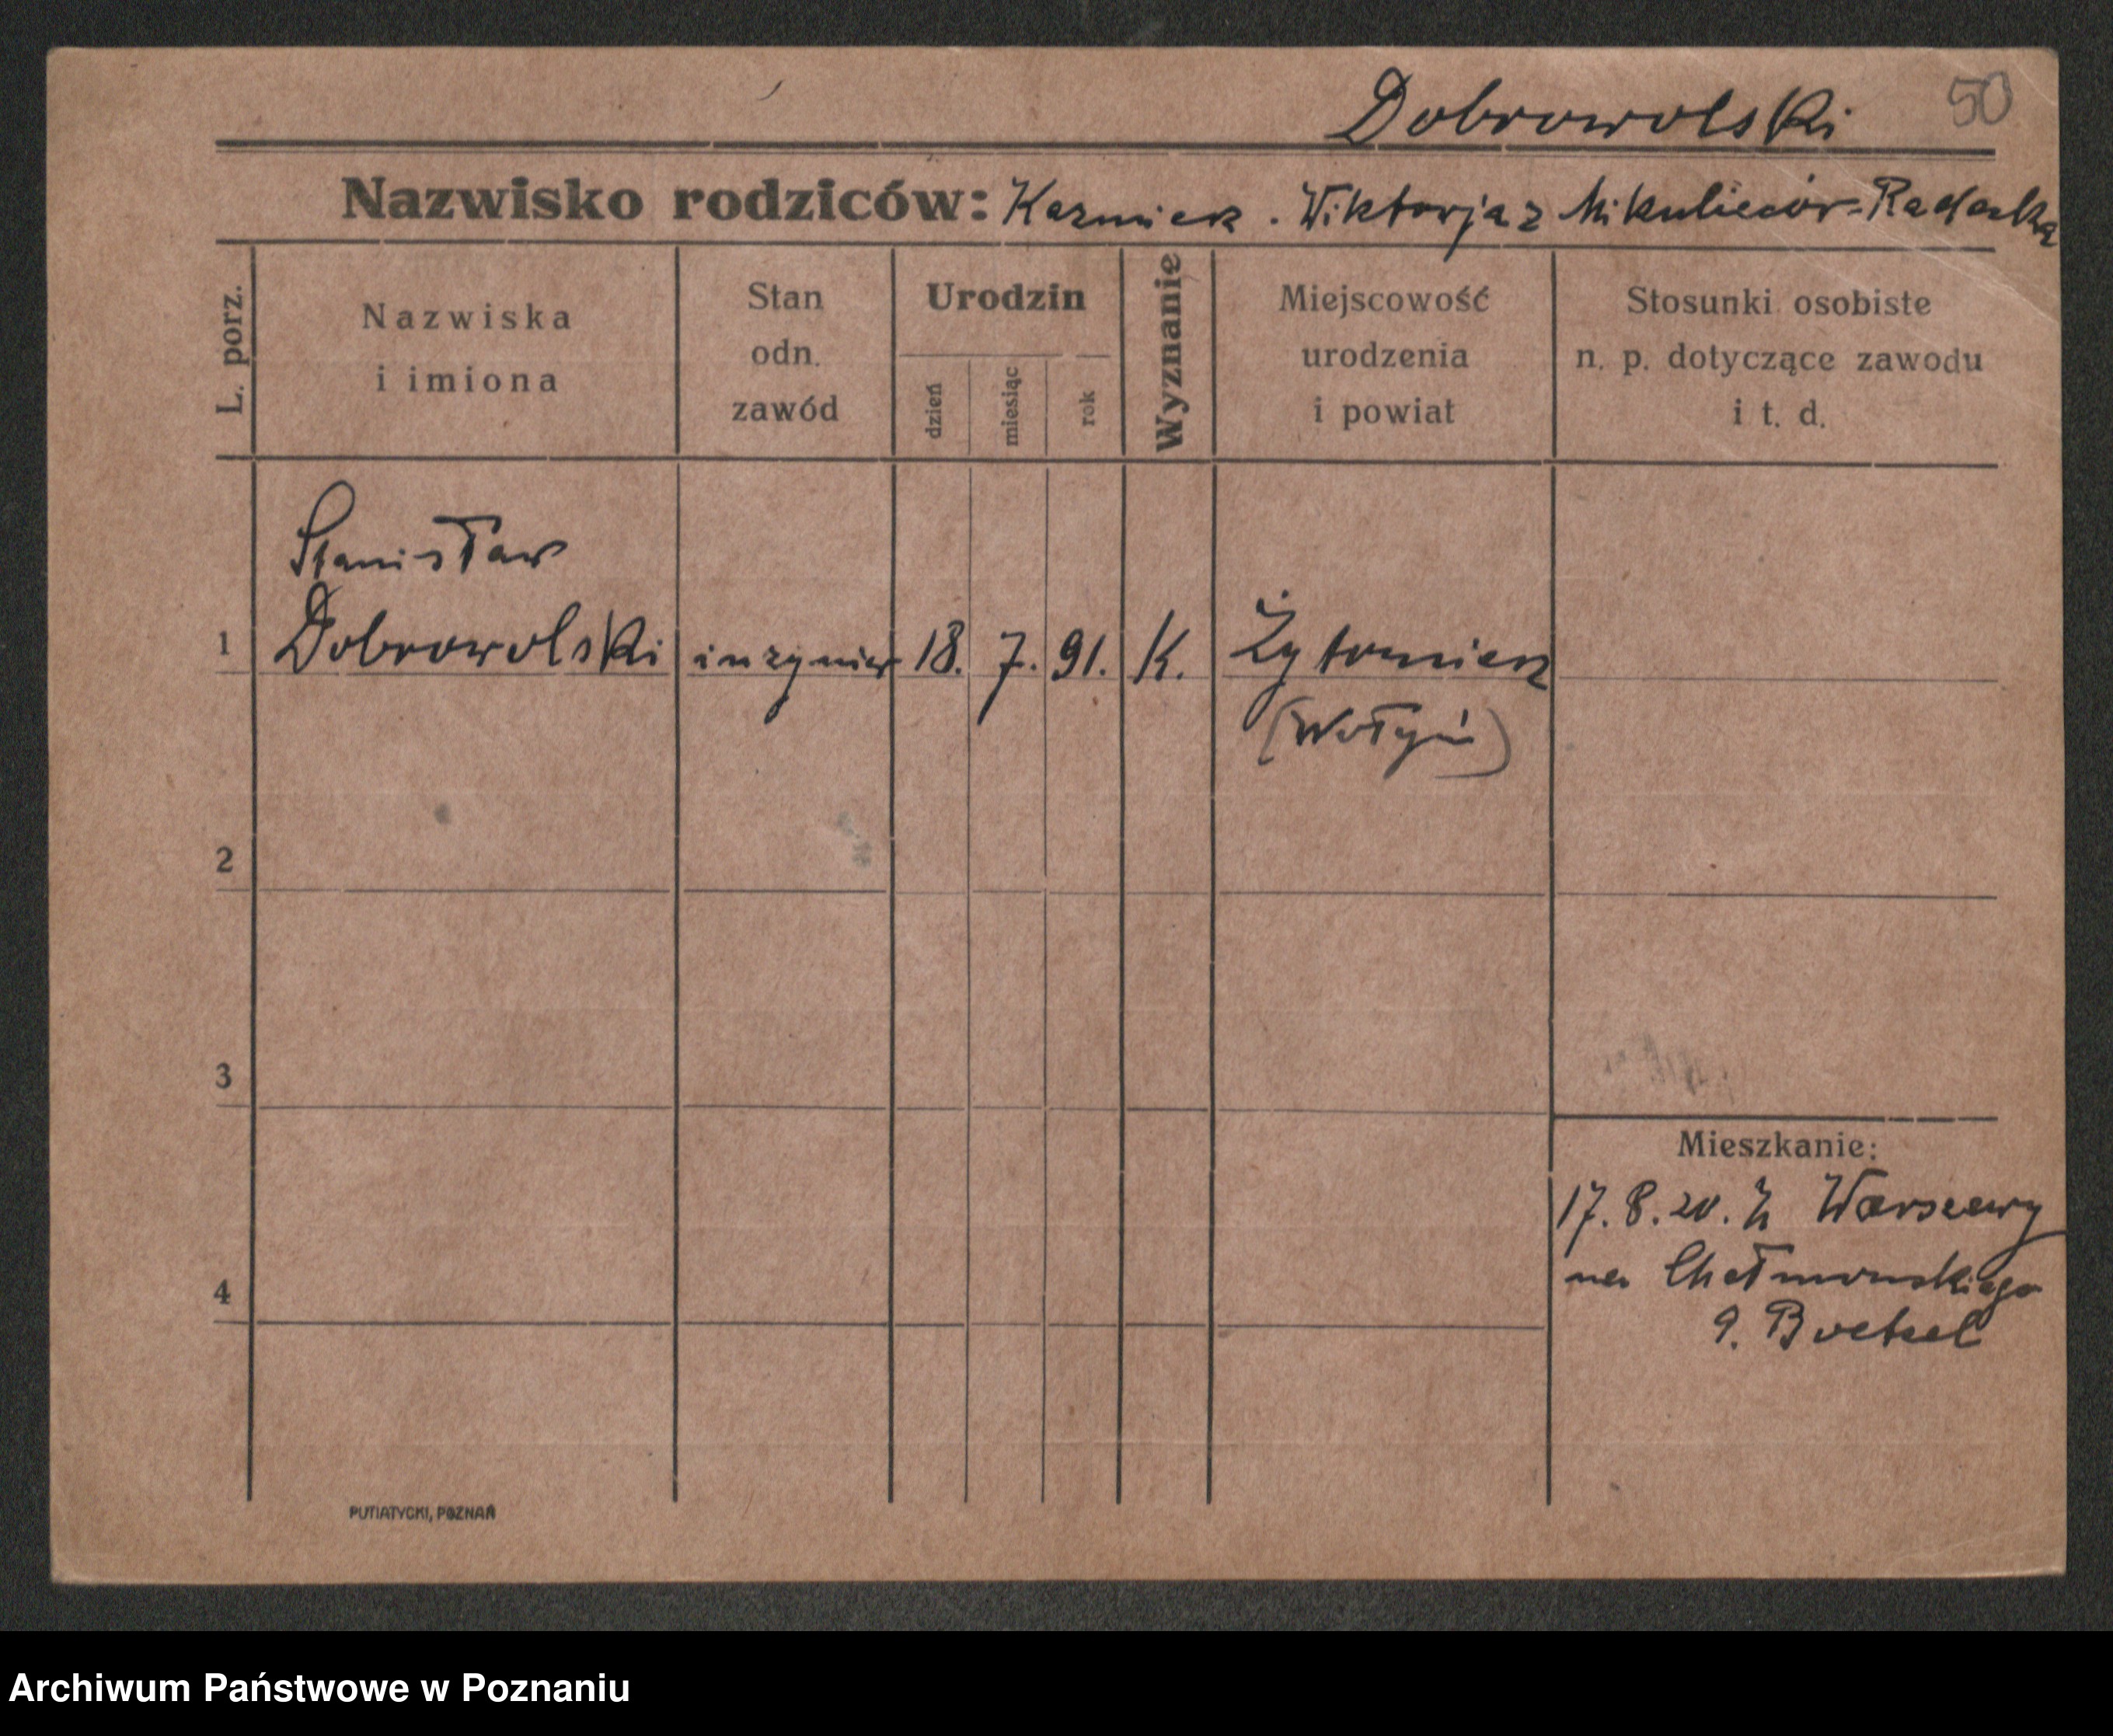 Dobrowolski 50
Nazwisko rodziców: Kazmierz . Wiktorja z Mikuliczów-Radecka
L. porz.
Nazwiska
i imiona
Stan
odn.
zawód
Urodzin
dzień
miesiąc
rok
Wyznanie
Miejscowość
urodzenia
i powiat
Stosunki osobiste
n. p. dotyczące zawodu
i t. d.
Stanisław
1 Dobrowolski inzynier 18. 7. 91. K. Żytomierz
(Wołyń)
2
3
Mieszkanie:
17.8.20. Z Warszawy
na Chełmońskiego
4
9.
PUTIATYCKI, POZNAŃ
Archiwum Państwowe w Poznaniu